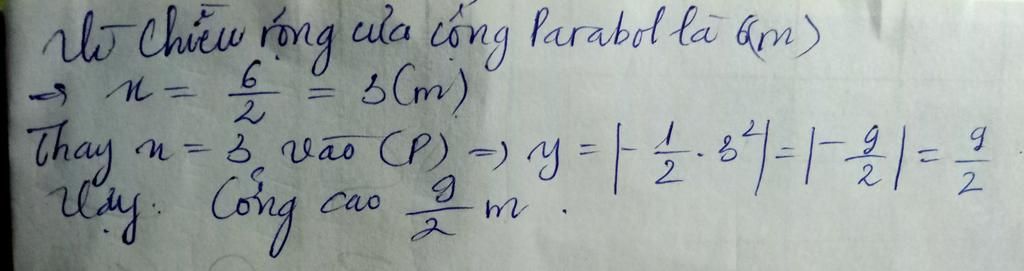 Vì Chiều rộng của cổng Parabol là 6(m)
=> x = 6/2 = 3(m)
Thay x = 3 vào (P) => y = |-1/2 . 3²| = |-9/2| = 9/2
Vậy. Cổng cao 9/2 m .